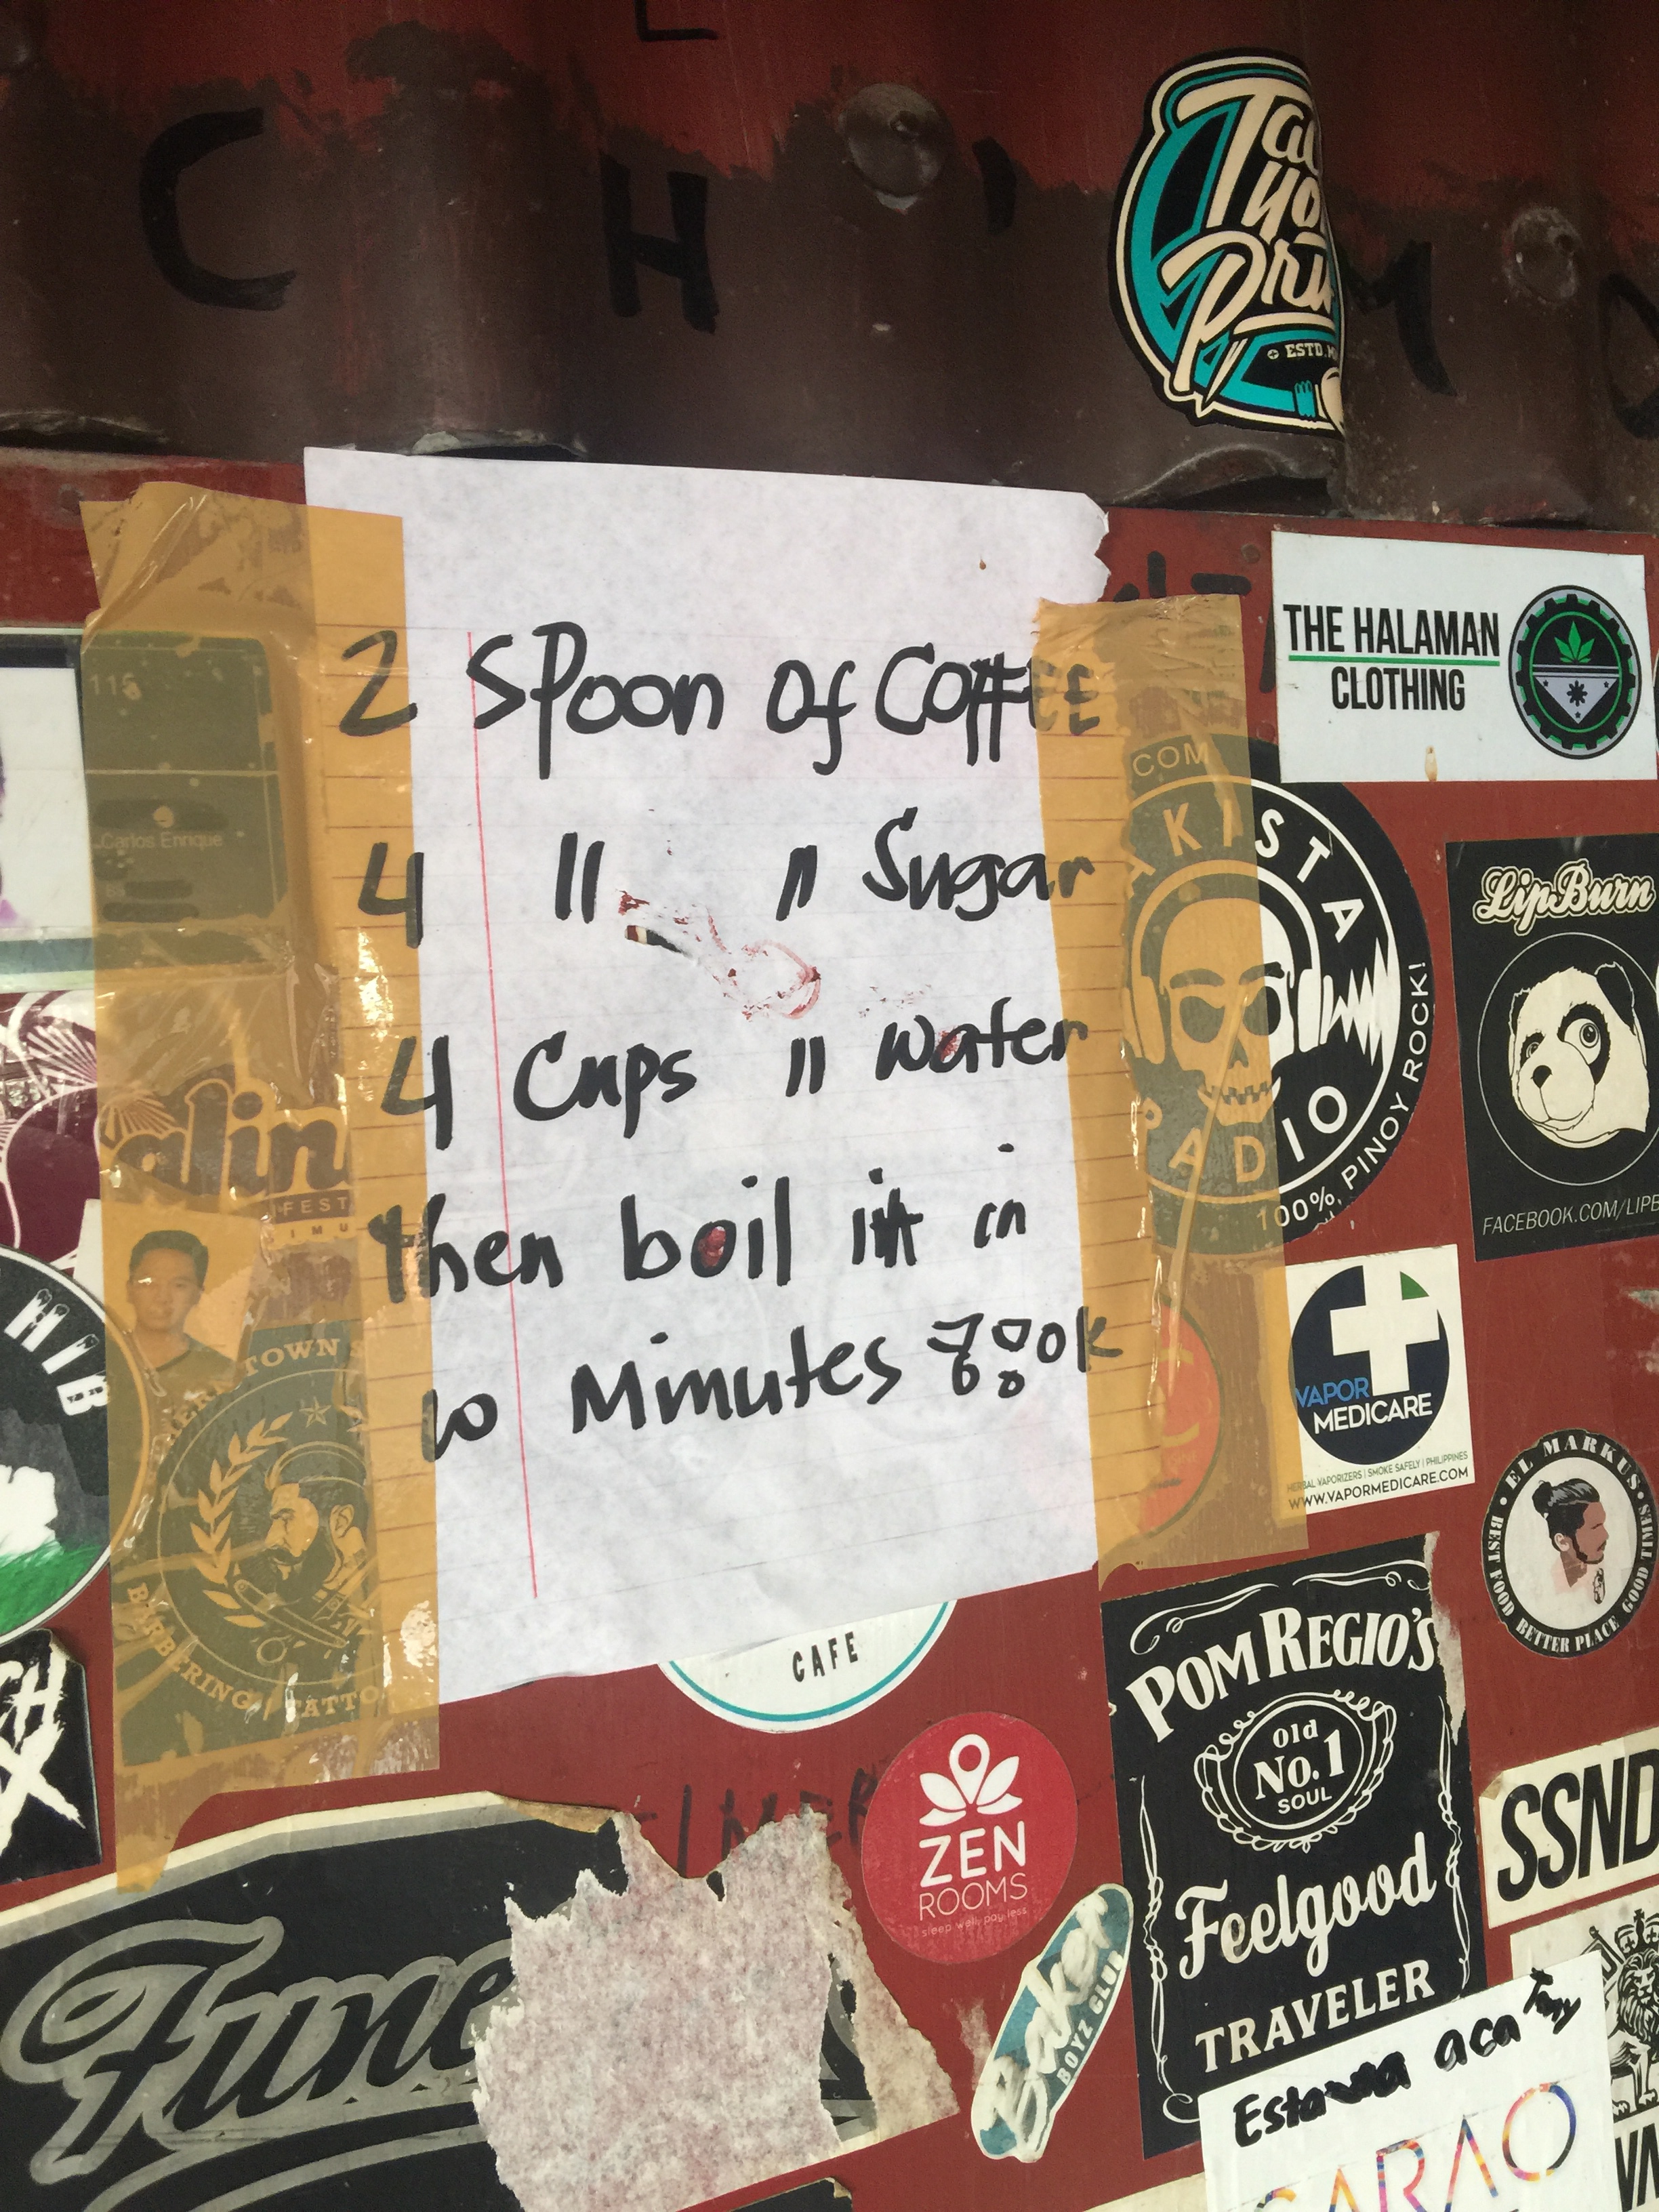 L
C H ' M O
Ta
yo
Pri
ESTD.
THE HALAMAN
CLOTHING
2 Spoon of CoffEE
4 〃 〃 Sugar
4 Cups 〃 water
then boil it in
10 Minutes ok
115
Carlos Enrique
.COM
AKISTA
RADIO
100% PINOY ROCK!
LipBurn
FACEBOOK.COM/LIPB
alin
FEST
I M U
HIB
TOWN S
BARBERING / TATTO
VAPOR
MEDICARE
HERBAL VAPORIZERS | SMOKE SAFELY | PHILIPPINES
WWW.VAPORMEDICARE.COM
EL MARKUS
BEST FOOD BETTER PLACE GOOD TIMES
CAFE
CH
X
POM REGIO'S
Old
No.1
SOUL
Feelgood
TRAVELER
ZEN
ROOMS
sleep well, pay less
SSND
BOYZ CLUB
Fume
Estanna aca Tony
SARAO
VA